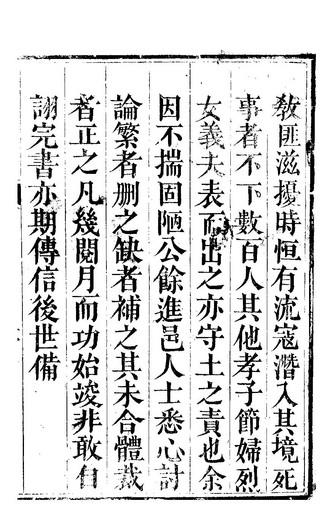 敎匪滋擾時恒有流寇潛入其境死
事者不下數百人其他孝子節婦烈
女義夫表而出之亦守土之責也余
因不揣固陋公餘進邑人士悉心討
論繁者删之缺者補之其未合體裁
者正之凡幾閱月而功始竣非敢自
詡完書亦期傳信後世備